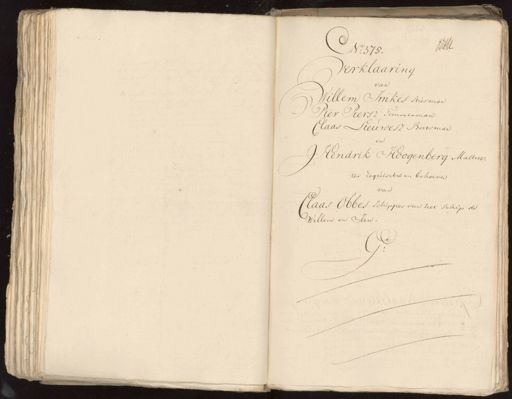 No. 575.
Verklaaring
van
Willem Imkes Stierman
Pier Piersz. Timmerman
Claas Lieuwesz. Bootsman
en
J. Hendrik Hoogenberg Matroos
ter requisitie en behoeve
van
Claas Obbes Schipper van het Schip de
Willem en Jan.